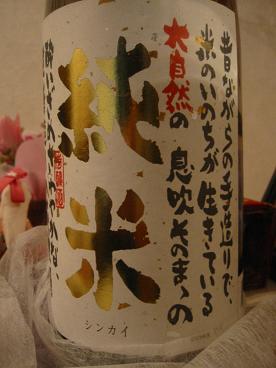 昔ながらの手造りで、
米のいのちが生きている
大自然の息吹そのまゝの
純米
シンカイ
酔いざめさわやかな、